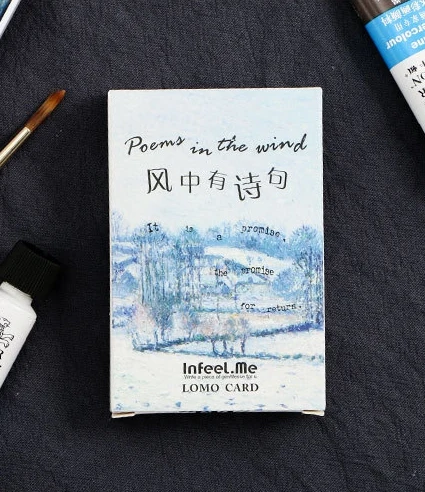 Poems in the wind
风中有诗句
It is a promise.
the promise
for return.
Infeel.Me
Write a piece of gentleness for u.
LOMO CARD